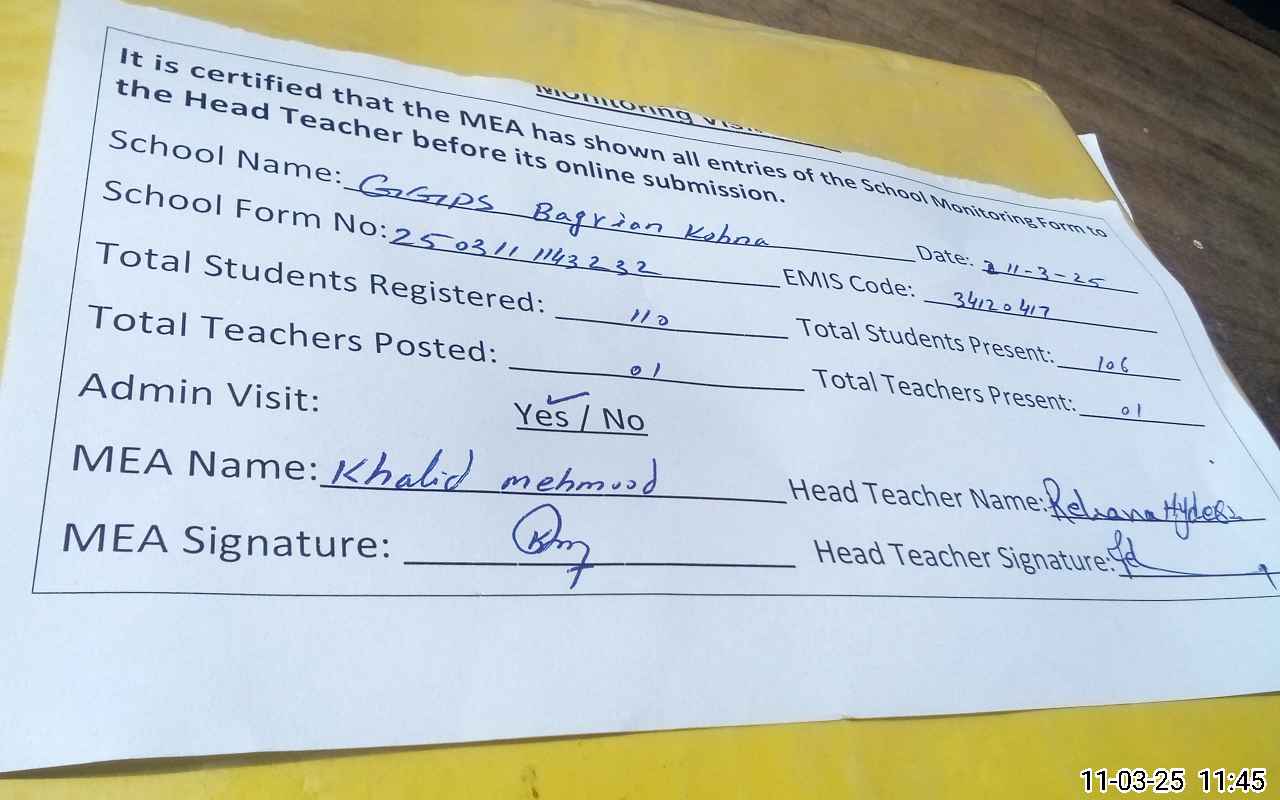 Monitoring Visit
It is certified that the MEA has shown all entries of the School Monitoring Form to
the Head Teacher before its online submission.
School Name: GGPS Bagrian Kohna Date: 11-3-25
School Form No: 250311 1143232 EMIS Code: 34120417
Total Students Registered: 110 Total Students Present: 106
Total Teachers Posted: 01 Total Teachers Present: 01
Admin Visit: Yes / No
MEA Name: Khalid mehmood Head Teacher Name:
MEA Signature: Head Teacher Signature:
11-03-25 11:45